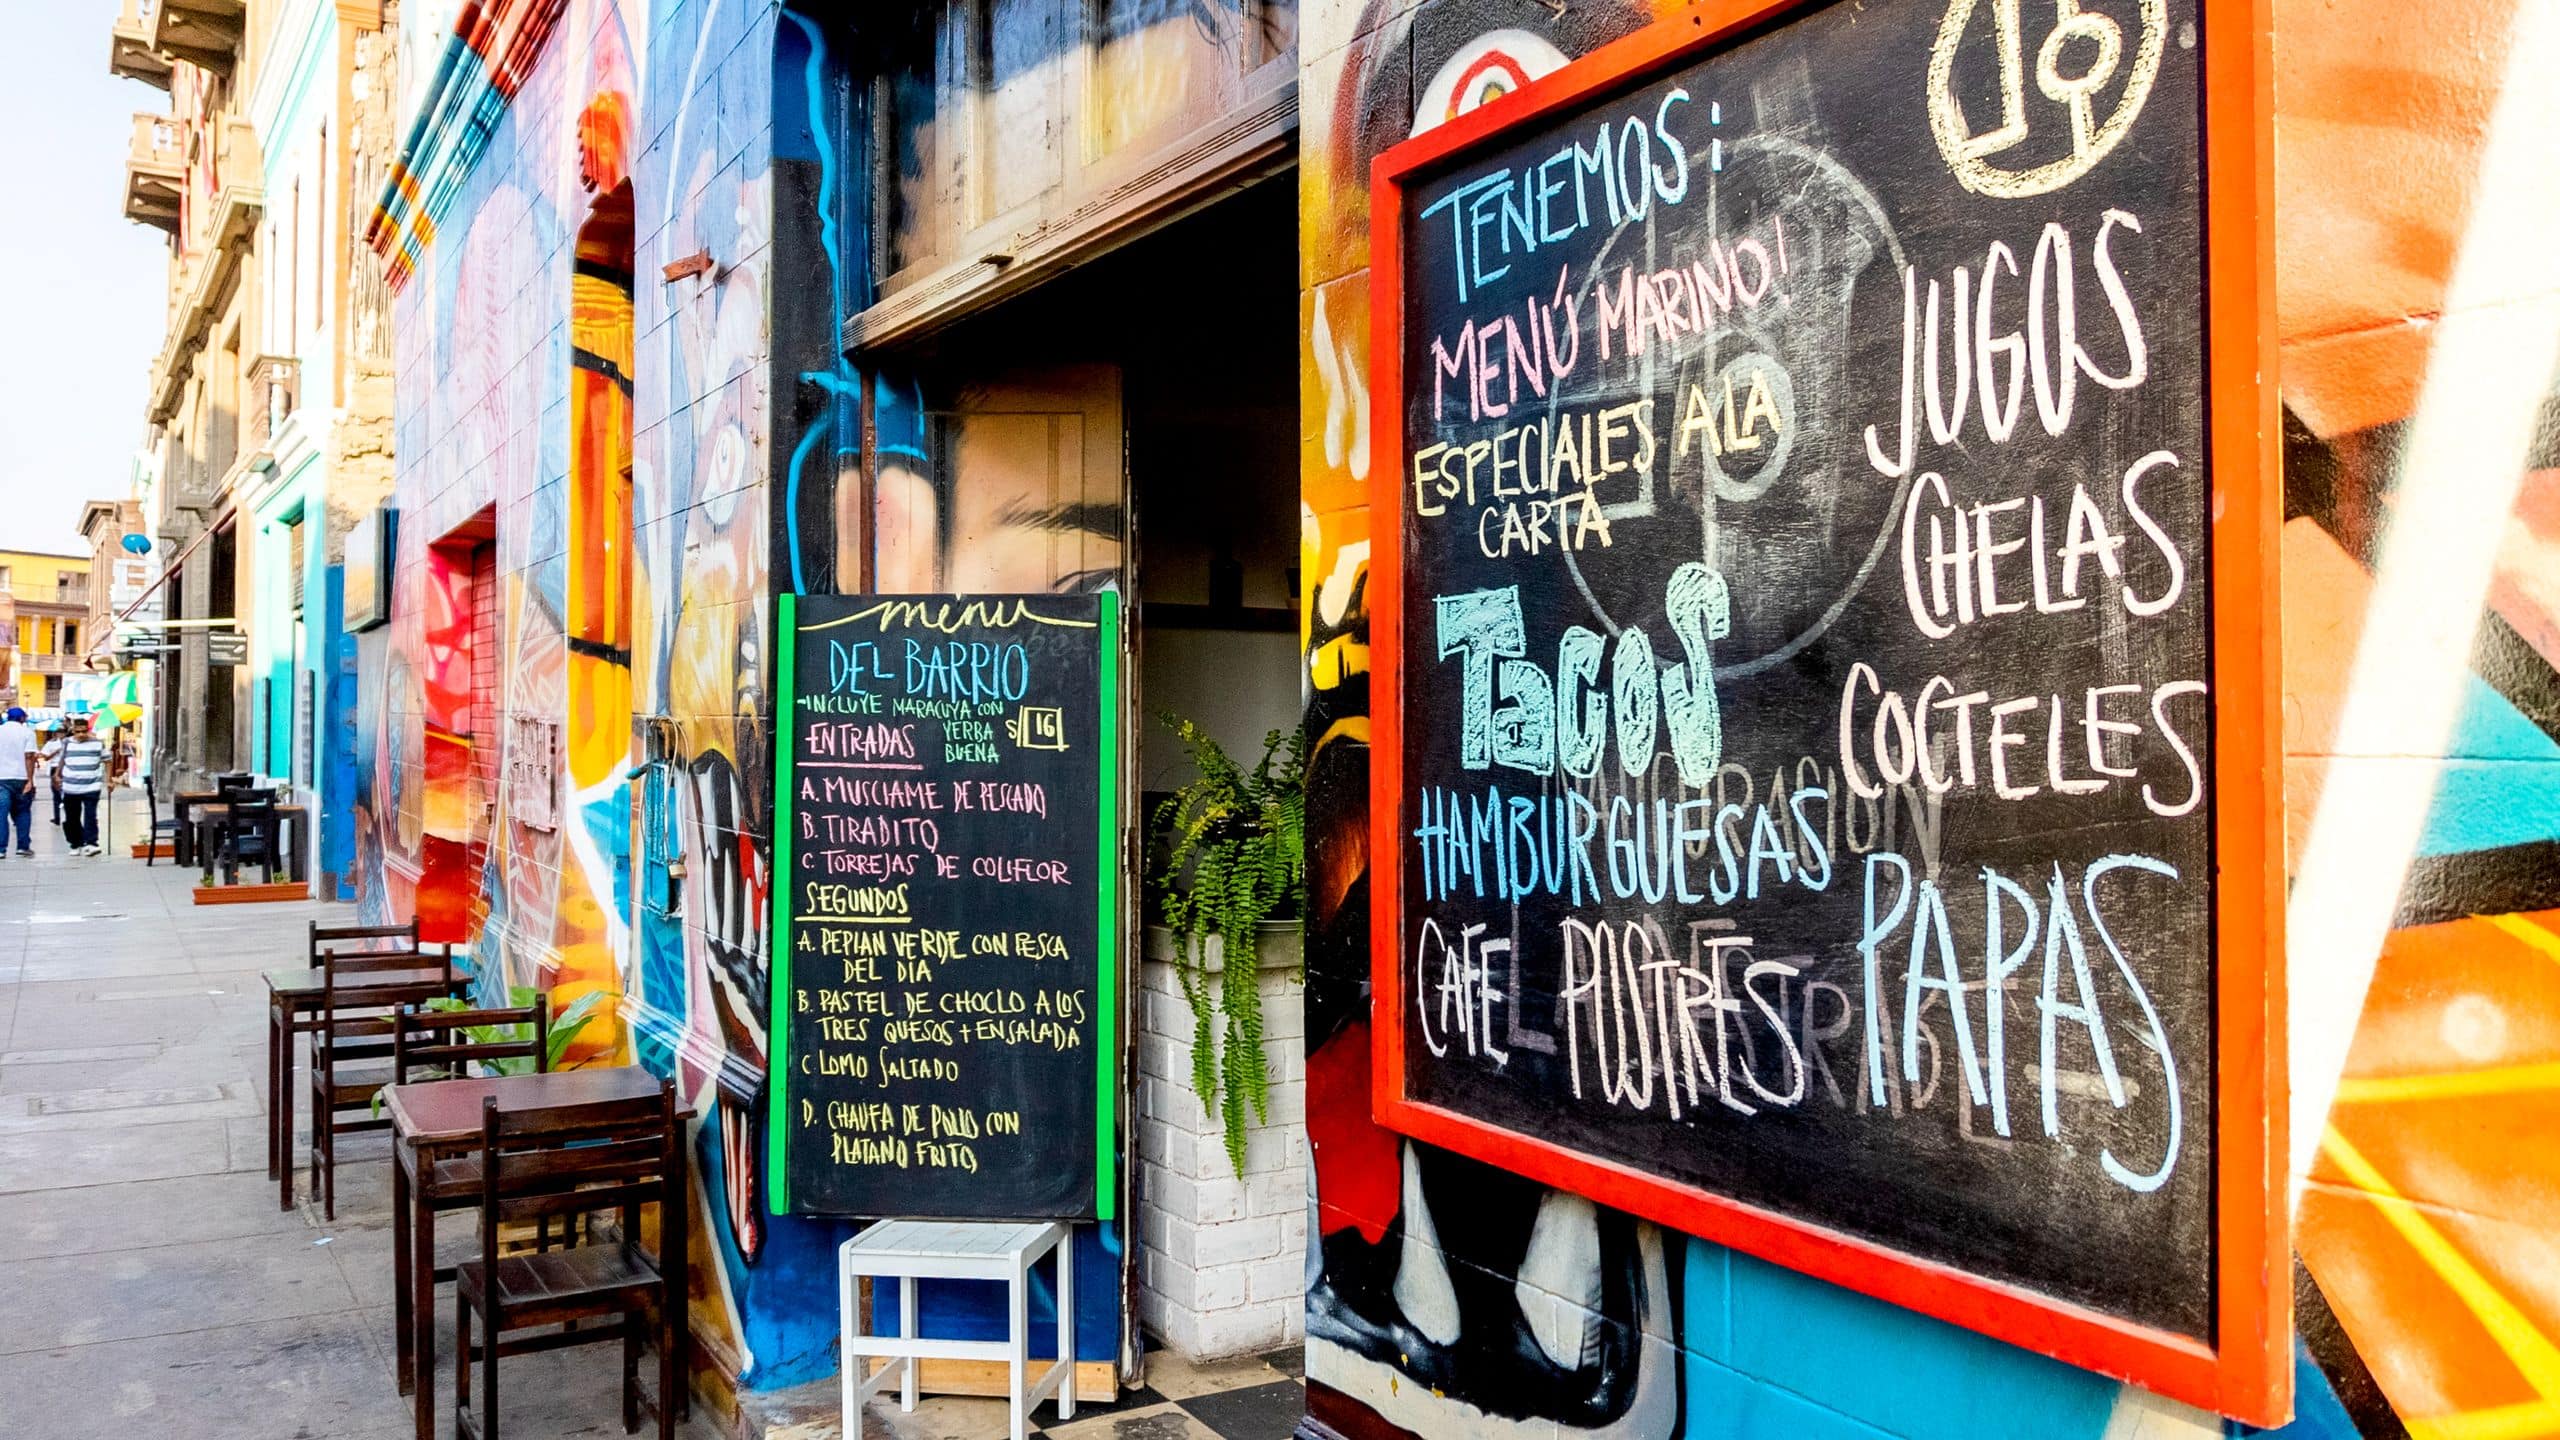 menu
DEL BARRIO
-INCLUYE MARACUYA CON
YERBA
BUENA
S/ 16
ENTRADAS
A. MUSCIAME DE PESCADO
B. TIRADITO
C. TORREJAS DE COLIFLOR
SEGUNDOS
A. PEPIAN VERDE CON PESCA
DEL DIA
B. PASTEL DE CHOCLO A LOS
TRES QUESOS + ENSALADA
C LOMO SALTADO
D. CHAUFA DE POLLO CON
PLATANO FRITO
TENEMOS:
MENÚ MARINO!
ESPECIALES A LA
CARTA
TacoS
HAMBURGUESAS
CAFE POSTRES
JUGOS
CHELAS
COCTELES
PAPAS